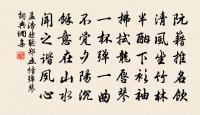 阮籍推名飲
清風坐竹林
半酣下衫袖
拂拭龍唇琴
一杯彈一曲
不覺夕陽沉
餘意在山水
聞之諧夙心
孟浩然聽鄭五愔彈琴
詞典網集